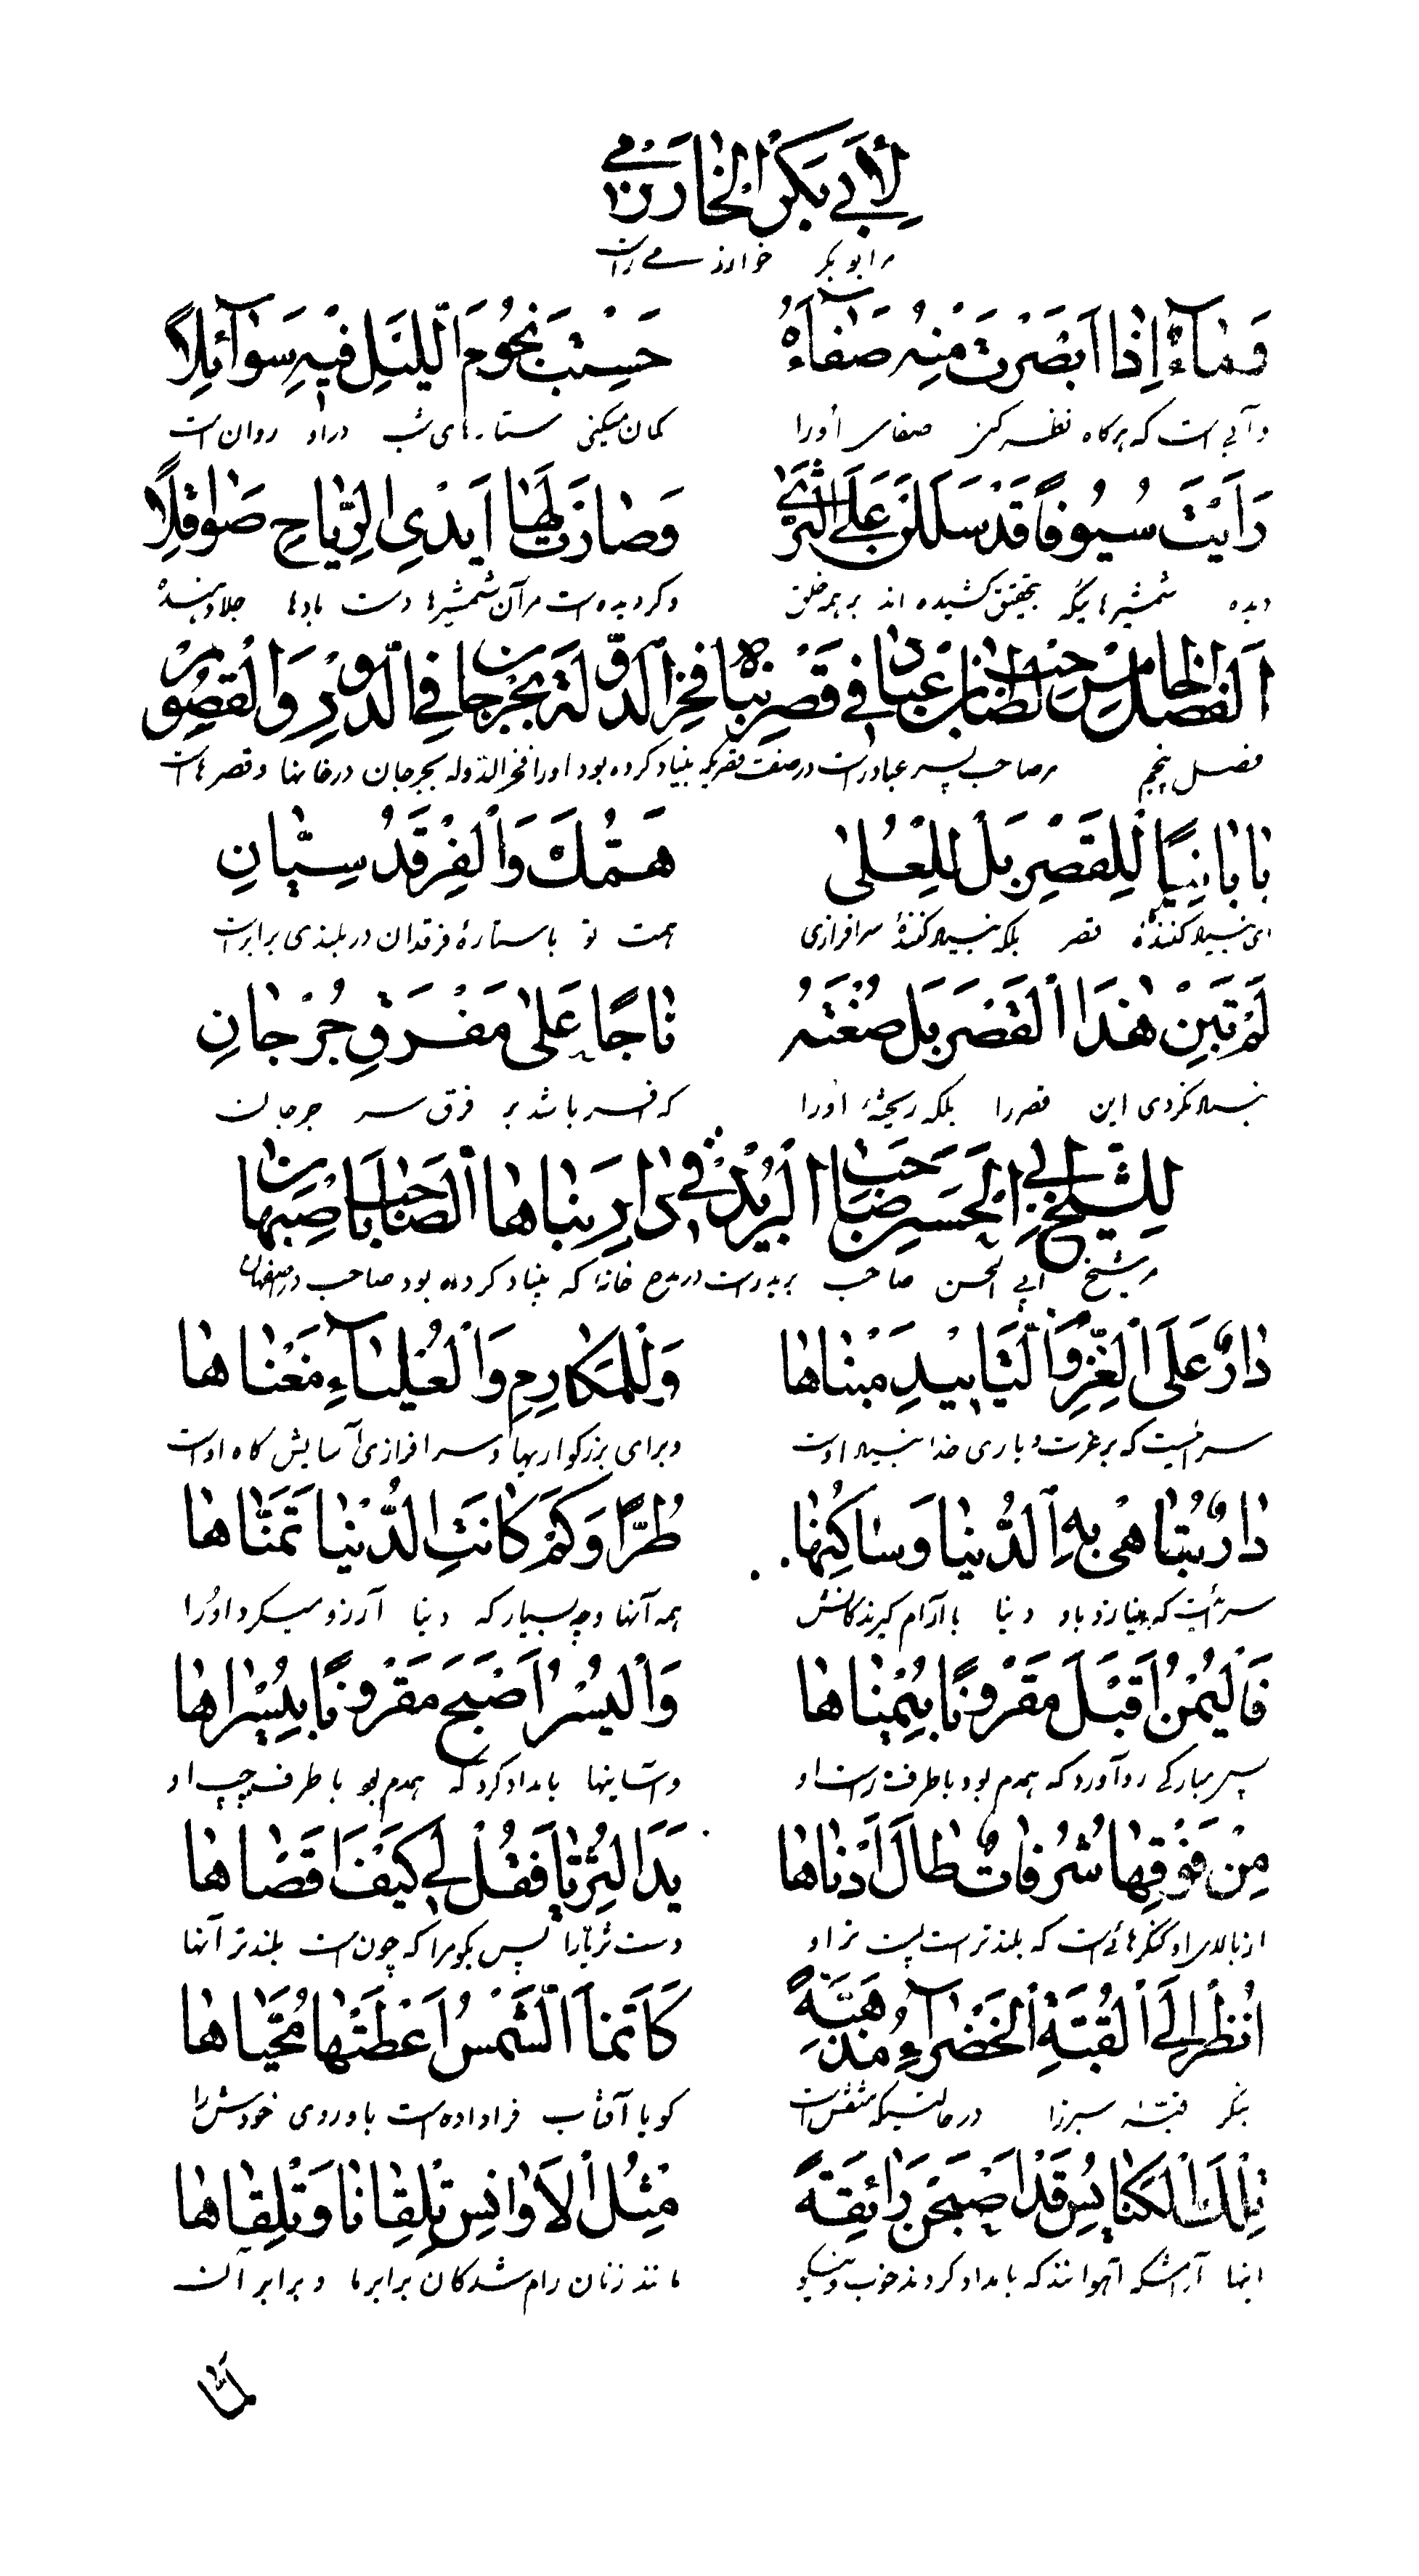 لِأَبي بَكْرٍ الْخٰارَزْمي
مر ابو بکر خوارزمی راست
وَمٰآءٌ اِذٰا اَبْصَرْتَ مِنْهُ صَفٰآءَهُ حَسِبْتَ نُجُومَ الَّليْلِ فيهِ سَوٰآئِلًا
و آبی است که هرگاه نظر کنی صفای اورا گمان میکنی ستارهای شب در او روان است
رَاَيْتَ سُيُوفاً قَدْ سَلَلْنَ عَلَى الثَّرىٰ وَصٰارَتْ لَهٰا اَيْدِى الرِّيٰاحِ صَوٰاقِلًا
دیده شمشیرهائیکه بتحقیق کشیده اند بر همه خلق و گردیده است مر آن شمشیرها دست بادها جلا دهنده
اَلْفَصْلُ الْخٰامِسُ لِصٰاحِبِ بْنِ عَبّٰادٍ في قَصْرٍ بَنٰاهُ فَخْرُ الدَّوْلَةِ بِجُرْجٰانَ فِي الدُّورِ وَالْقُصُورِ
فصل پنجم مر صاحب پسر عباد راست در صفت قصریکه بنیاد کرده بود اورا فخر الدوله بجرجان در خانها و قصرهاست
يٰا بٰانِيًا لِلْقَصْرِ بَلْ لِلْعُلىٰ هَمُّكَ وَالْفَرْقَدُ سِيّٰانِ
ای بنیاد کنندهٔ قصر بلکه بنیاد کنندهٔ سرافرازی همت تو با ستارهٔ فرقدان در بلندی برابر است
لَمْ تَبْنِ هٰذَا الْقَصْرَ بَلْ صُغْتَهُ تٰاجًا عَلىٰ مَفْرَقِ جُرْجٰانِ
بنیاد نکردی این قصر را بلکه ریختهٔ اورا که افسر باشد بر فرق سر جرجان
لِلشَّيْخِ اَبي الْحَسَنِ صٰاحِبِ الْبَريدِ في دٰارٍ بَنٰاهَا الصّٰاحِبُ بِاَصْبَهٰانَ
مر شیخ ابی الحسن صاحب برید راست در مدح خانهٔ که بنیاد کرده بود صاحب در اصفهان
دٰارٌ عَلَى الْعِزِّ وَالتَّأييدِ مَبْنٰاهٰا وَلِلْمَكٰارِمِ وَالْعُلْيٰآءِ مَغْنٰاهٰا
سرائیست که بر عزت و یاری خدا بنیاد اوست و برای بزرگواریها و سرافرازی آسایش گاه اوست
دٰارٌ تُبٰاهىٰ بِهَا الدُّنْيٰا وَسٰاكِنُهٰا طُرًّا وَكَمْ كٰانَتِ الدُّنْيٰا تَمَنّٰاهٰا
سرائیست که مینازد باو دنیا با آرام گیرندگانش همه آنها و چه بسیار که دنیا آرزو میکرد اورا
فَالْيُمْنُ اَقْبَلَ مَقْرُونًا بِيُمْنٰاهٰا وَالْيُسْرُ اَصْبَحَ مَقْرُونًا بِيُسْرٰاهٰا
پس مبارکی رو آورد که همدم بود با طرف راست او و آسانیها بامداد کرد که همدم بود با طرف چپ او
مِنْ فَوْقِهٰا شُرُفٰاتٌ طٰالَ اَدْنٰاهٰا يَدَ الثُّرَيّٰا فَقُلْ لي كَيْفَ اَقْصٰاهٰا
از بالای او کنگرهائیست که بلندتر است پست تر او دست ثریا را پس بگو مرا که چون است بلندتر آنها
اُنْظُرْ اِلَى الْقُبَّةِ الْخَضْرٰآءِ مُذْهَبَةً كَاَنَّمَا الشَّمْسُ اَعْطَتْهٰا مُحَيّٰاهٰا
بنگر قبّهٔ سبز را در حالتیکه منقش است گویا آفتاب فرا داده است باو روی خودش را
تِلْكَ الْكَنٰايِسُ قَدْ اَصْبَحْنَ رٰائِقَةً مِثْلُ الْاَوٰانِسِ تِلْقٰانٰا وَتِلْقٰاهٰا
اینها آرامشگه آهوانند که بامداد کردند خوب و نیکو مانند زنان رام شدگان برابر ما و برابر آن